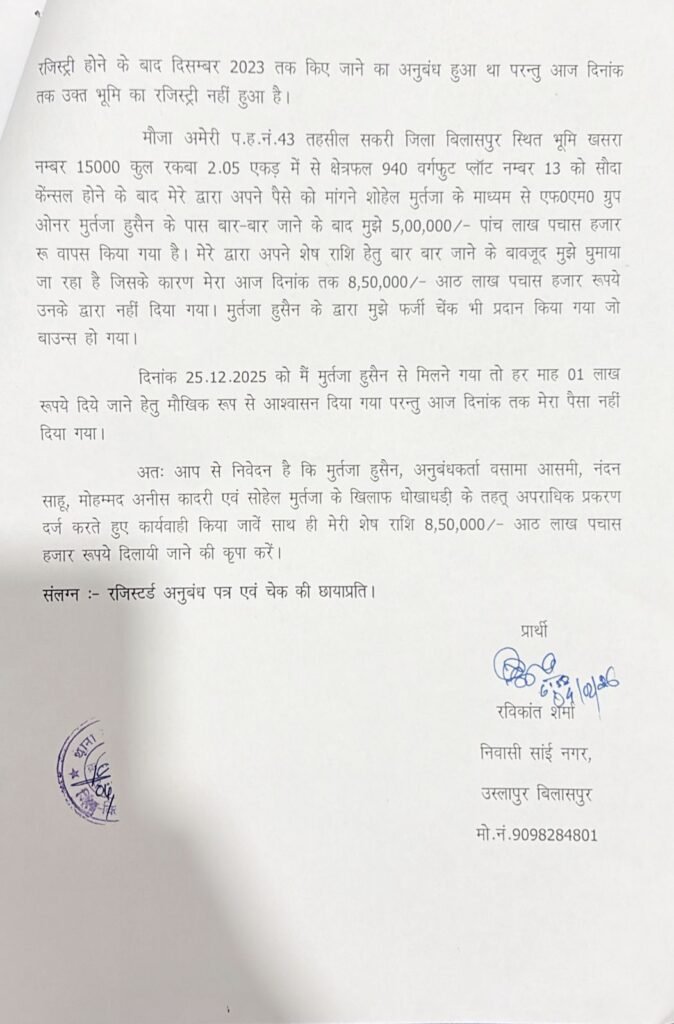 रजिस्ट्री होने के बाद दिसम्बर 2023 तक किए जाने का अनुबंध हुआ था परन्तु आज दिनांक
तक उक्त भूमि का रजिस्ट्री नहीं हुआ है।
मौजा अमेरी प.ह.नं.43 तहसील सकरी जिला बिलासपुर स्थित भूमि खसरा
नम्बर 15000 कुल रकबा 2.05 एकड़ में से क्षेत्रफल 940 वर्गफुट प्लॉट नम्बर 13 को सौदा
केंन्सल होने के बाद मेरे द्वारा अपने पैसे को मांगने शोहेल मुर्तजा के माध्यम से एफ0एम0 ग्रुप
ओनर मुर्तजा हुसैन के पास बार-बार जाने के बाद मुझे 5,00,000/- पांच लाख पचास हजार
रू वापस किया गया है। मेरे द्वारा अपने शेष राशि हेतु बार बार जाने के बावजूद मुझे घुमाया
जा रहा है जिसके कारण मेरा आज दिनांक तक 8,50,000/- आठ लाख पचास हजार रूपये
उनके द्वारा नहीं दिया गया। मुर्तजा हुसैन के द्वारा मुझे फर्जी चेंक भी प्रदान किया गया जो
बाउन्स हो गया।
दिनांक 25.12.2025 को मैं मुर्तजा हुसैन से मिलने गया तो हर माह 01 लाख
रूपये दिये जाने हेतु मौखिक रूप से आश्वासन दिया गया परन्तु आज दिनांक तक मेरा पैसा नहीं
दिया गया।
अतः आप से निवेदन है कि मुर्तजा हुसैन, अनुबंधकर्ता वसामा आसमी, नंदन
साहू, मोहम्मद अनीस कादरी एवं सोहेल मुर्तजा के खिलाफ धोखाधड़ी के तहत् अपराधिक प्रकरण
दर्ज करते हुए कार्यवाही किया जावें साथ ही मेरी शेष राशि 8,50,000/- आठ लाख पचास
हजार रूपये दिलायी जाने की कृपा करें।
संलग्न :- रजिस्टर्ड अनुबंध पत्र एवं चेक की छायाप्रति।
प्रार्थी
04/02/26
रविकांत शर्मा
निवासी सांई नगर,
उस्लापुर बिलासपुर
मो.नं.9098284801
थाना